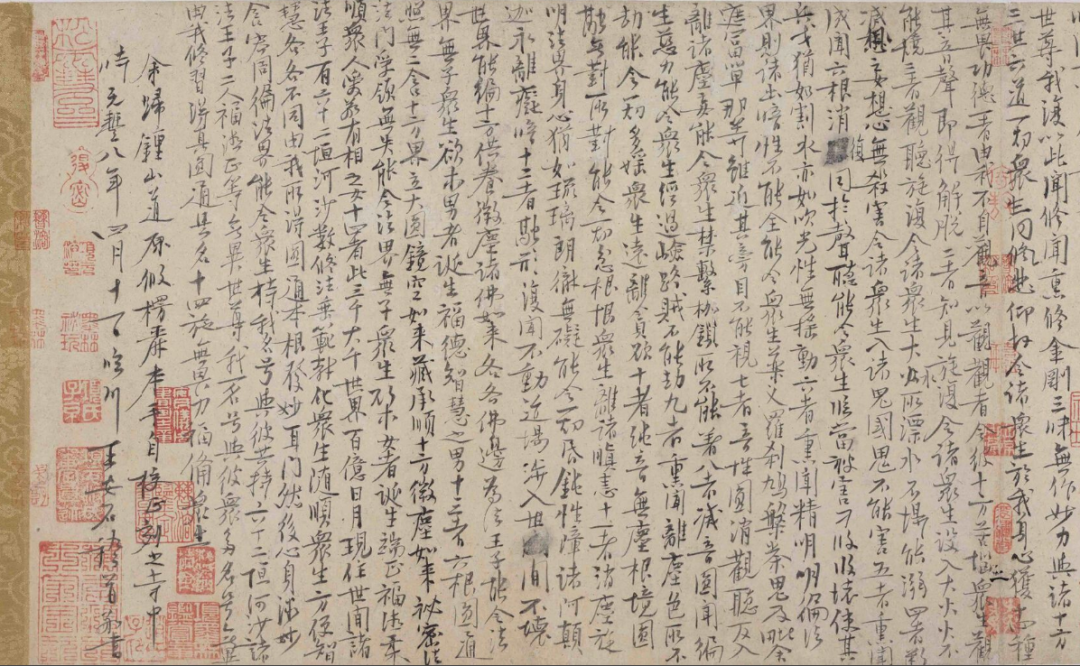 世尊我復以此聞修聞熏修金剛三昧無作妙力與諸十方
三世六道一切衆生同悲仰故令諸衆生於我身心獲十四種
無畏功德一者由我不自觀音以觀觀者令彼十方苦惱衆生觀
其音聲即得解脫二者知見旋復令諸衆生設入大火火不
能燒三者觀聽旋復令諸衆生大水所漂水不能溺四者斷
滅妄想心無殺害令諸衆生入諸鬼國鬼不能害五者熏聞
成聞六根消復同於聲聽能令衆生臨當被害刀段段壞使其
兵戈猶如割水亦如吹光性無搖動六者熏聞精明明徧法
界則諸幽暗性不能全能令衆生藥叉羅刹鳩槃荼鬼及毗舍
遮富單那等雖近其旁目不能視七者音性圓消觀聽反入
離諸塵妄能令衆生禁繫枷鎖所不能著八者滅音圓聞徧
生慈力能令衆生經過嶮路賊不能劫九者熏聞離塵色所不
劫能令一切多婬衆生遠離貪欲十者純音無塵根境圓
融無對所對能令一切忿恨衆生離諸瞋恚十一者消塵旋
明法界身心猶如瑠璃朗徹無礙能令一切昏鈍性障諸阿顛
迦永離癡暗十二者融形復聞不動道場涉入世間不壞
世界能徧十方供養微塵諸佛如來各各佛邊爲法王子能令法
界無子衆生欲求男者誕生福德智慧之男十三者六根圓通
照無二含十方界立大圓鏡空如來藏承順十方微塵如來祕密法
法門受領無失能令法界無子衆生欲求女者誕生端正福德柔
順衆人愛敬有相之女十四者此三千大千世界百億日月現住世間諸
法王子有六十二恒河沙數修法垂範教化衆生隨順衆生方便智
慧各各不同由我所得圓通本根發妙耳門然後心身微妙
含容周徧法界能令衆生持我名号與彼共持六十二恒河沙諸
法王子二人福德正等無異世尊我一名号與彼衆多名号無異
由我修習得真圓通是名十四施無畏力福備衆生
余歸鍾山道原假楞嚴本手自校正刻之寺中
時元豐八年四月十一日臨川王安石稽首敬書